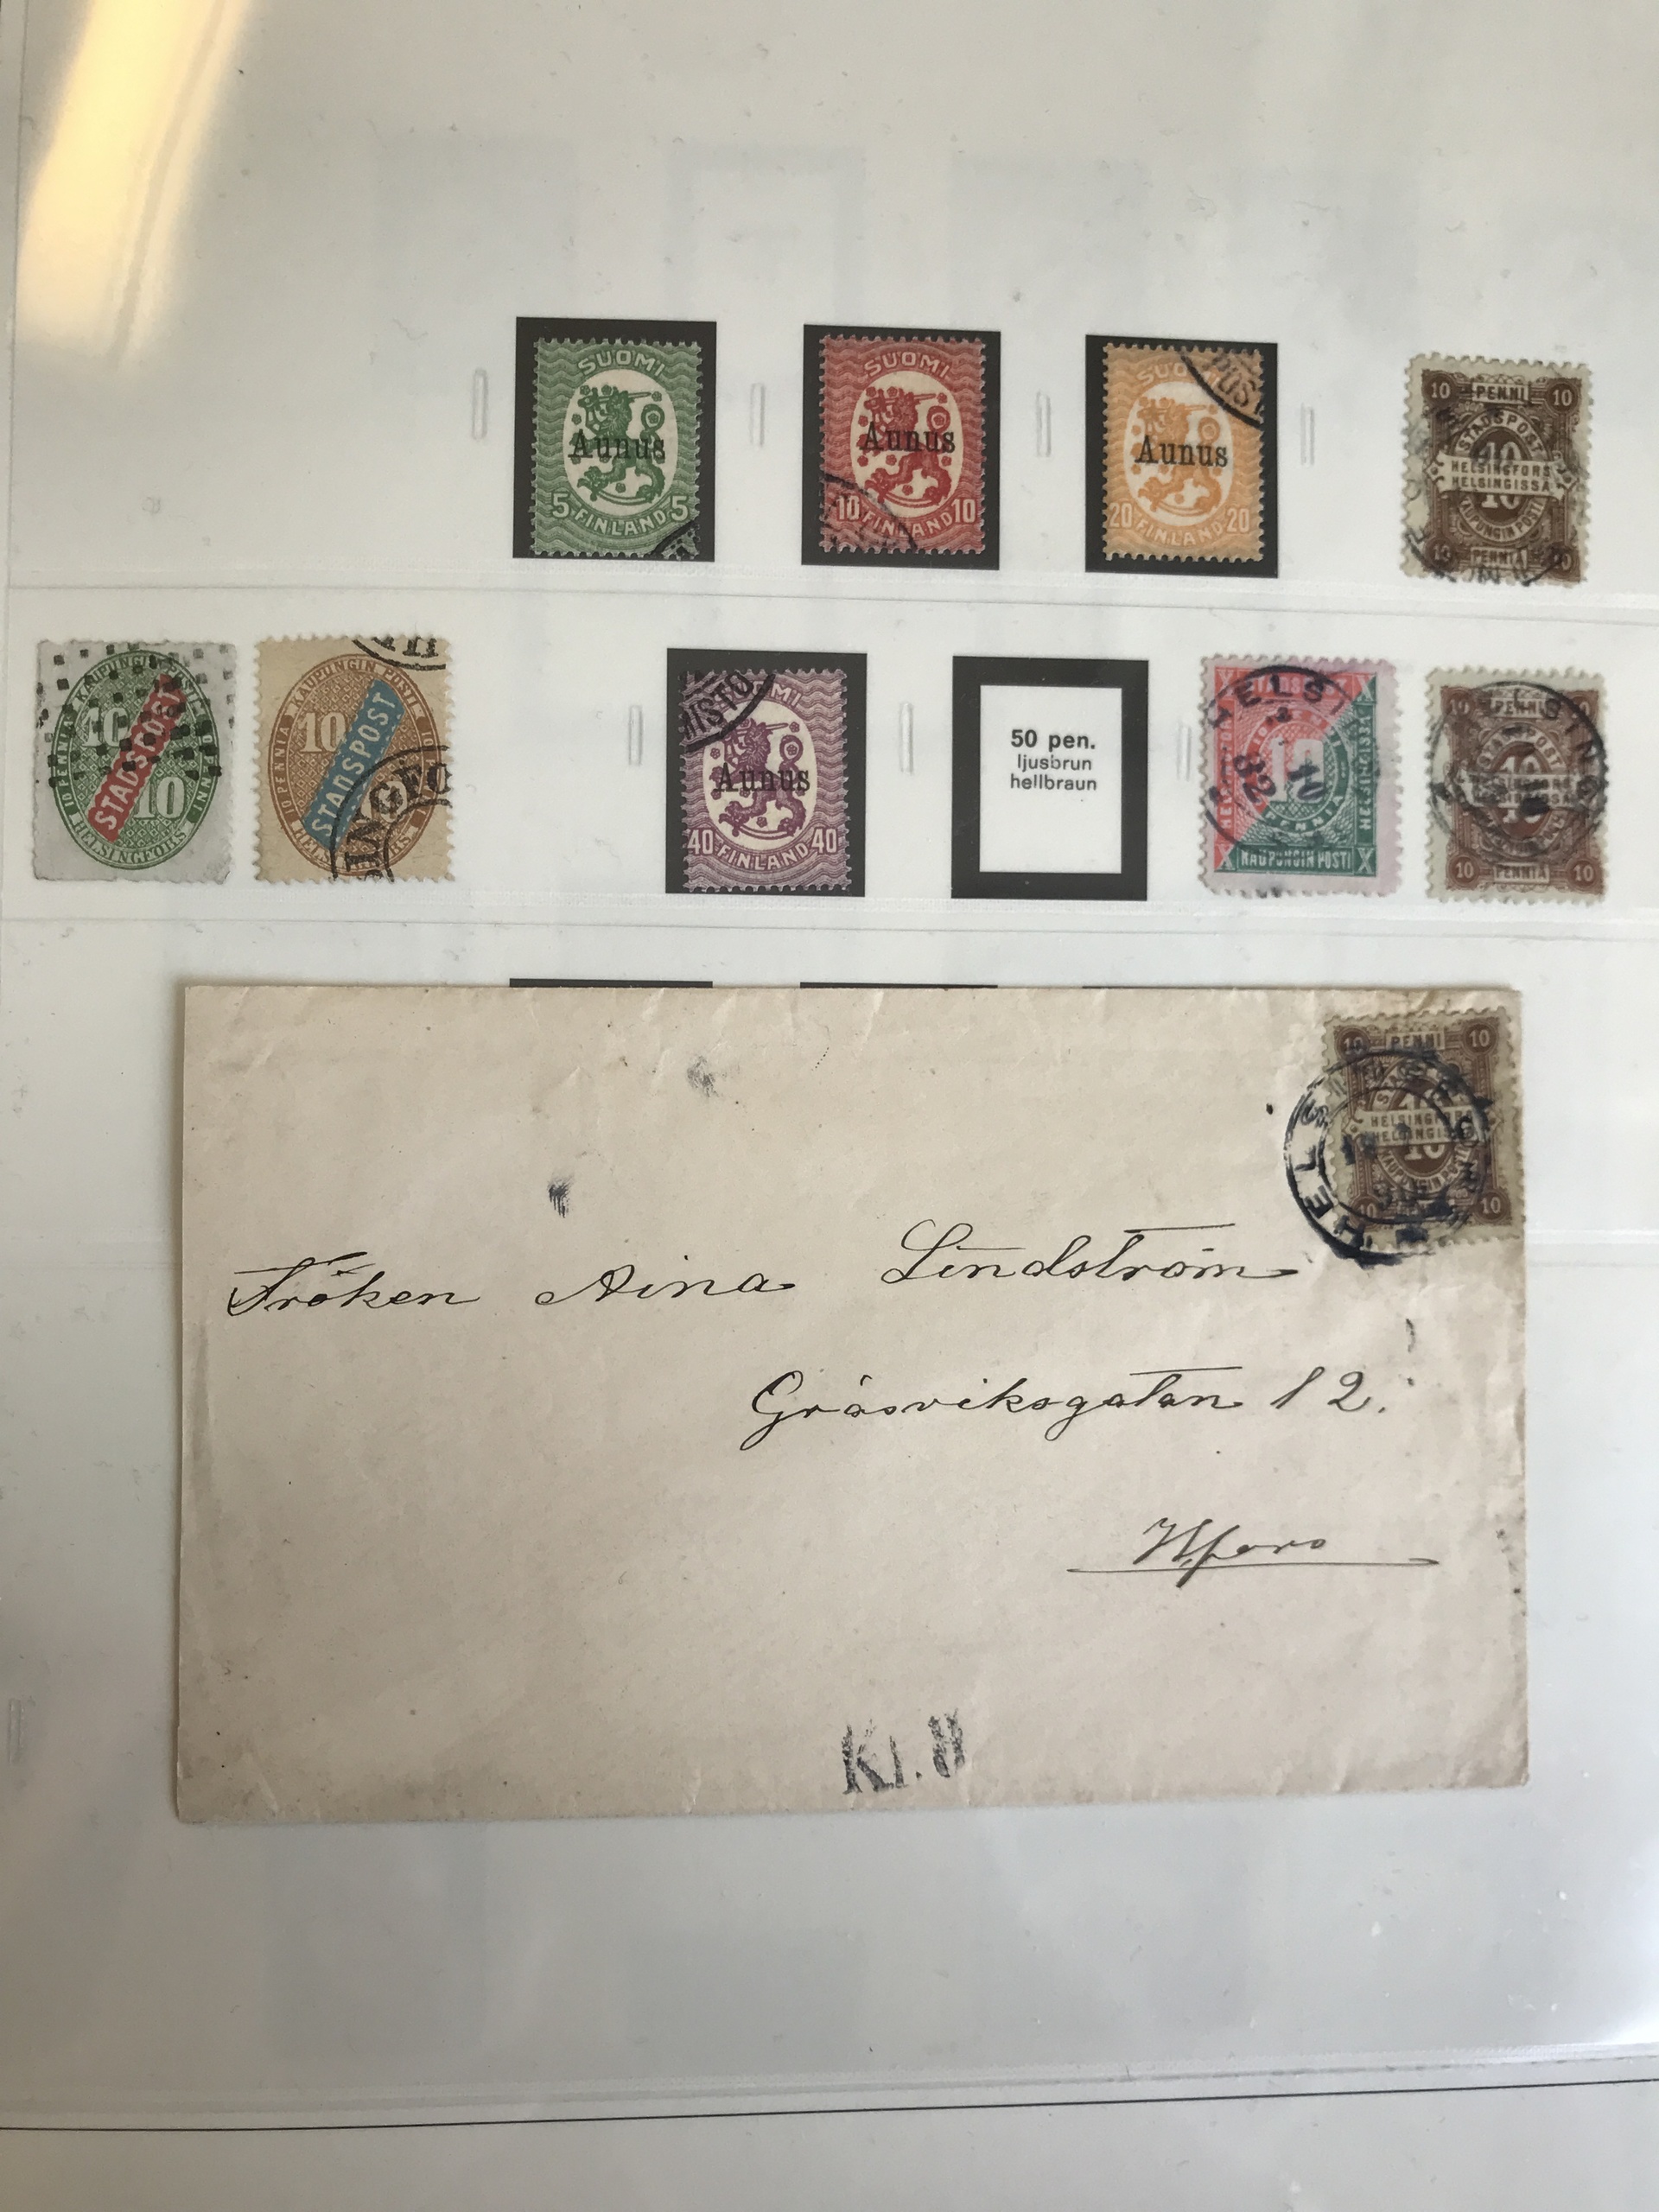 SUOMI
Aunus
5 FINLAND 5
SUOMI
Aunus
10 FINLAND 10
SUOMI
Aunus
20 FINLAND 20
10 PENNI 10
STADSPOST
HELSINGFORS
HELSINGISSÄ
10
KAUPUNGIN POSTI
10 PENNIÄ 10
KAUPUNGIN POSTI
10 PENNIÄ
10
STADSPOST
10
10 PENNI
HELSINGFORS
KAUPUNGIN POSTI
10 PENNIÄ
10
STADSPOST
HELSINGFORS
MISTO
SUOMI
Aunus
40 FINLAND 40
50 pen.
ljusbrun
hellbraun
HELSI
X KAUPUNGIN POSTI X
10 PENNI 10
HELSING
10 PENNIÄ 10
10 PENNI 10
HELSINGFORS
HELSINGISSÄ
10
KAUPUNGIN POSTI
10 10
HELSINGFORS
Fröken Aina Lindström
Gräsviksgatan 12.
H.fors
Kl. 11